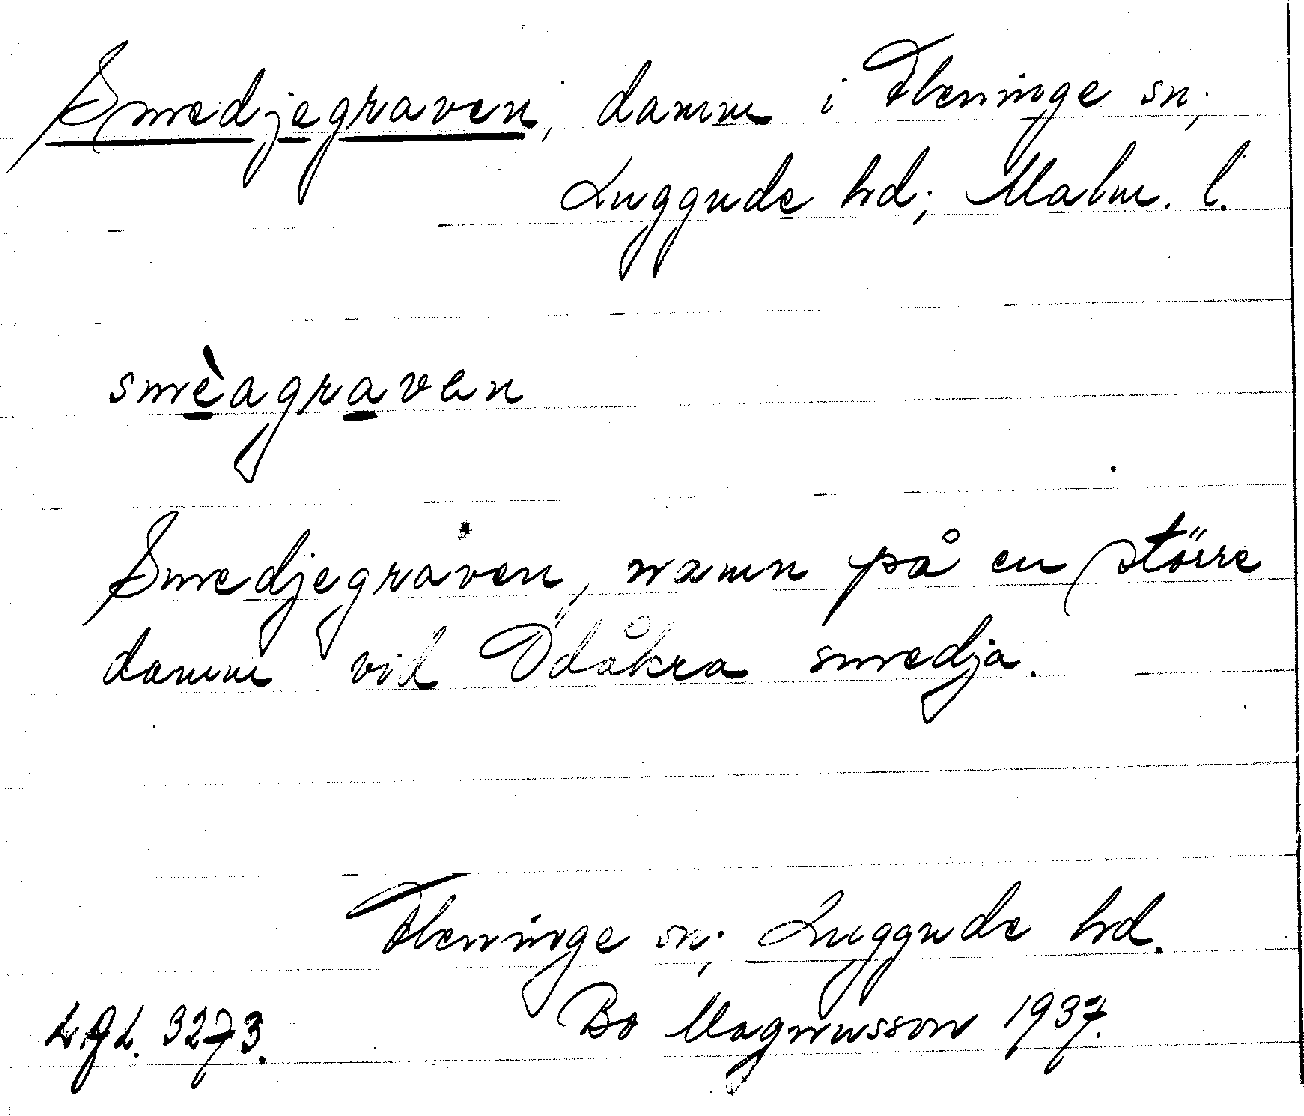 Smedjegraven, damm i Fleninge sn;
Luggude hd; Malm. l.
smèagraven
Smedjegraven, namn på en större
damm vid Ödåkra smedja.
Fleninge sn; Luggude hd.
LGL. 3273. Bo Magnusson 1937.